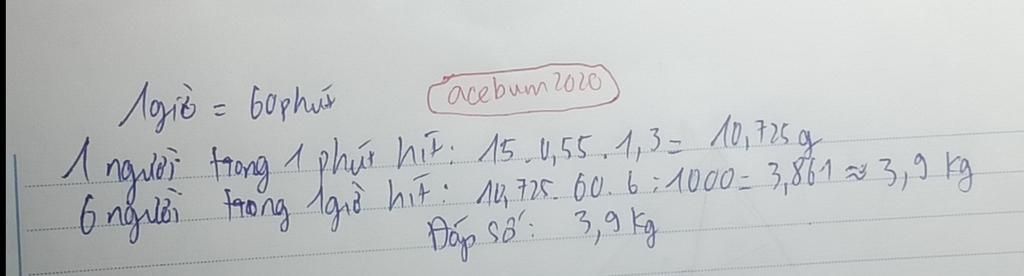 1giờ = 60phút
acebum2020
1 người trong 1 phút hít: 15.0,55.1,3 = 10,725g
6 người trong 1giờ hít: 10,725.60.6:1000 = 3,861 ≈ 3,9 kg
Đáp số: 3,9 kg